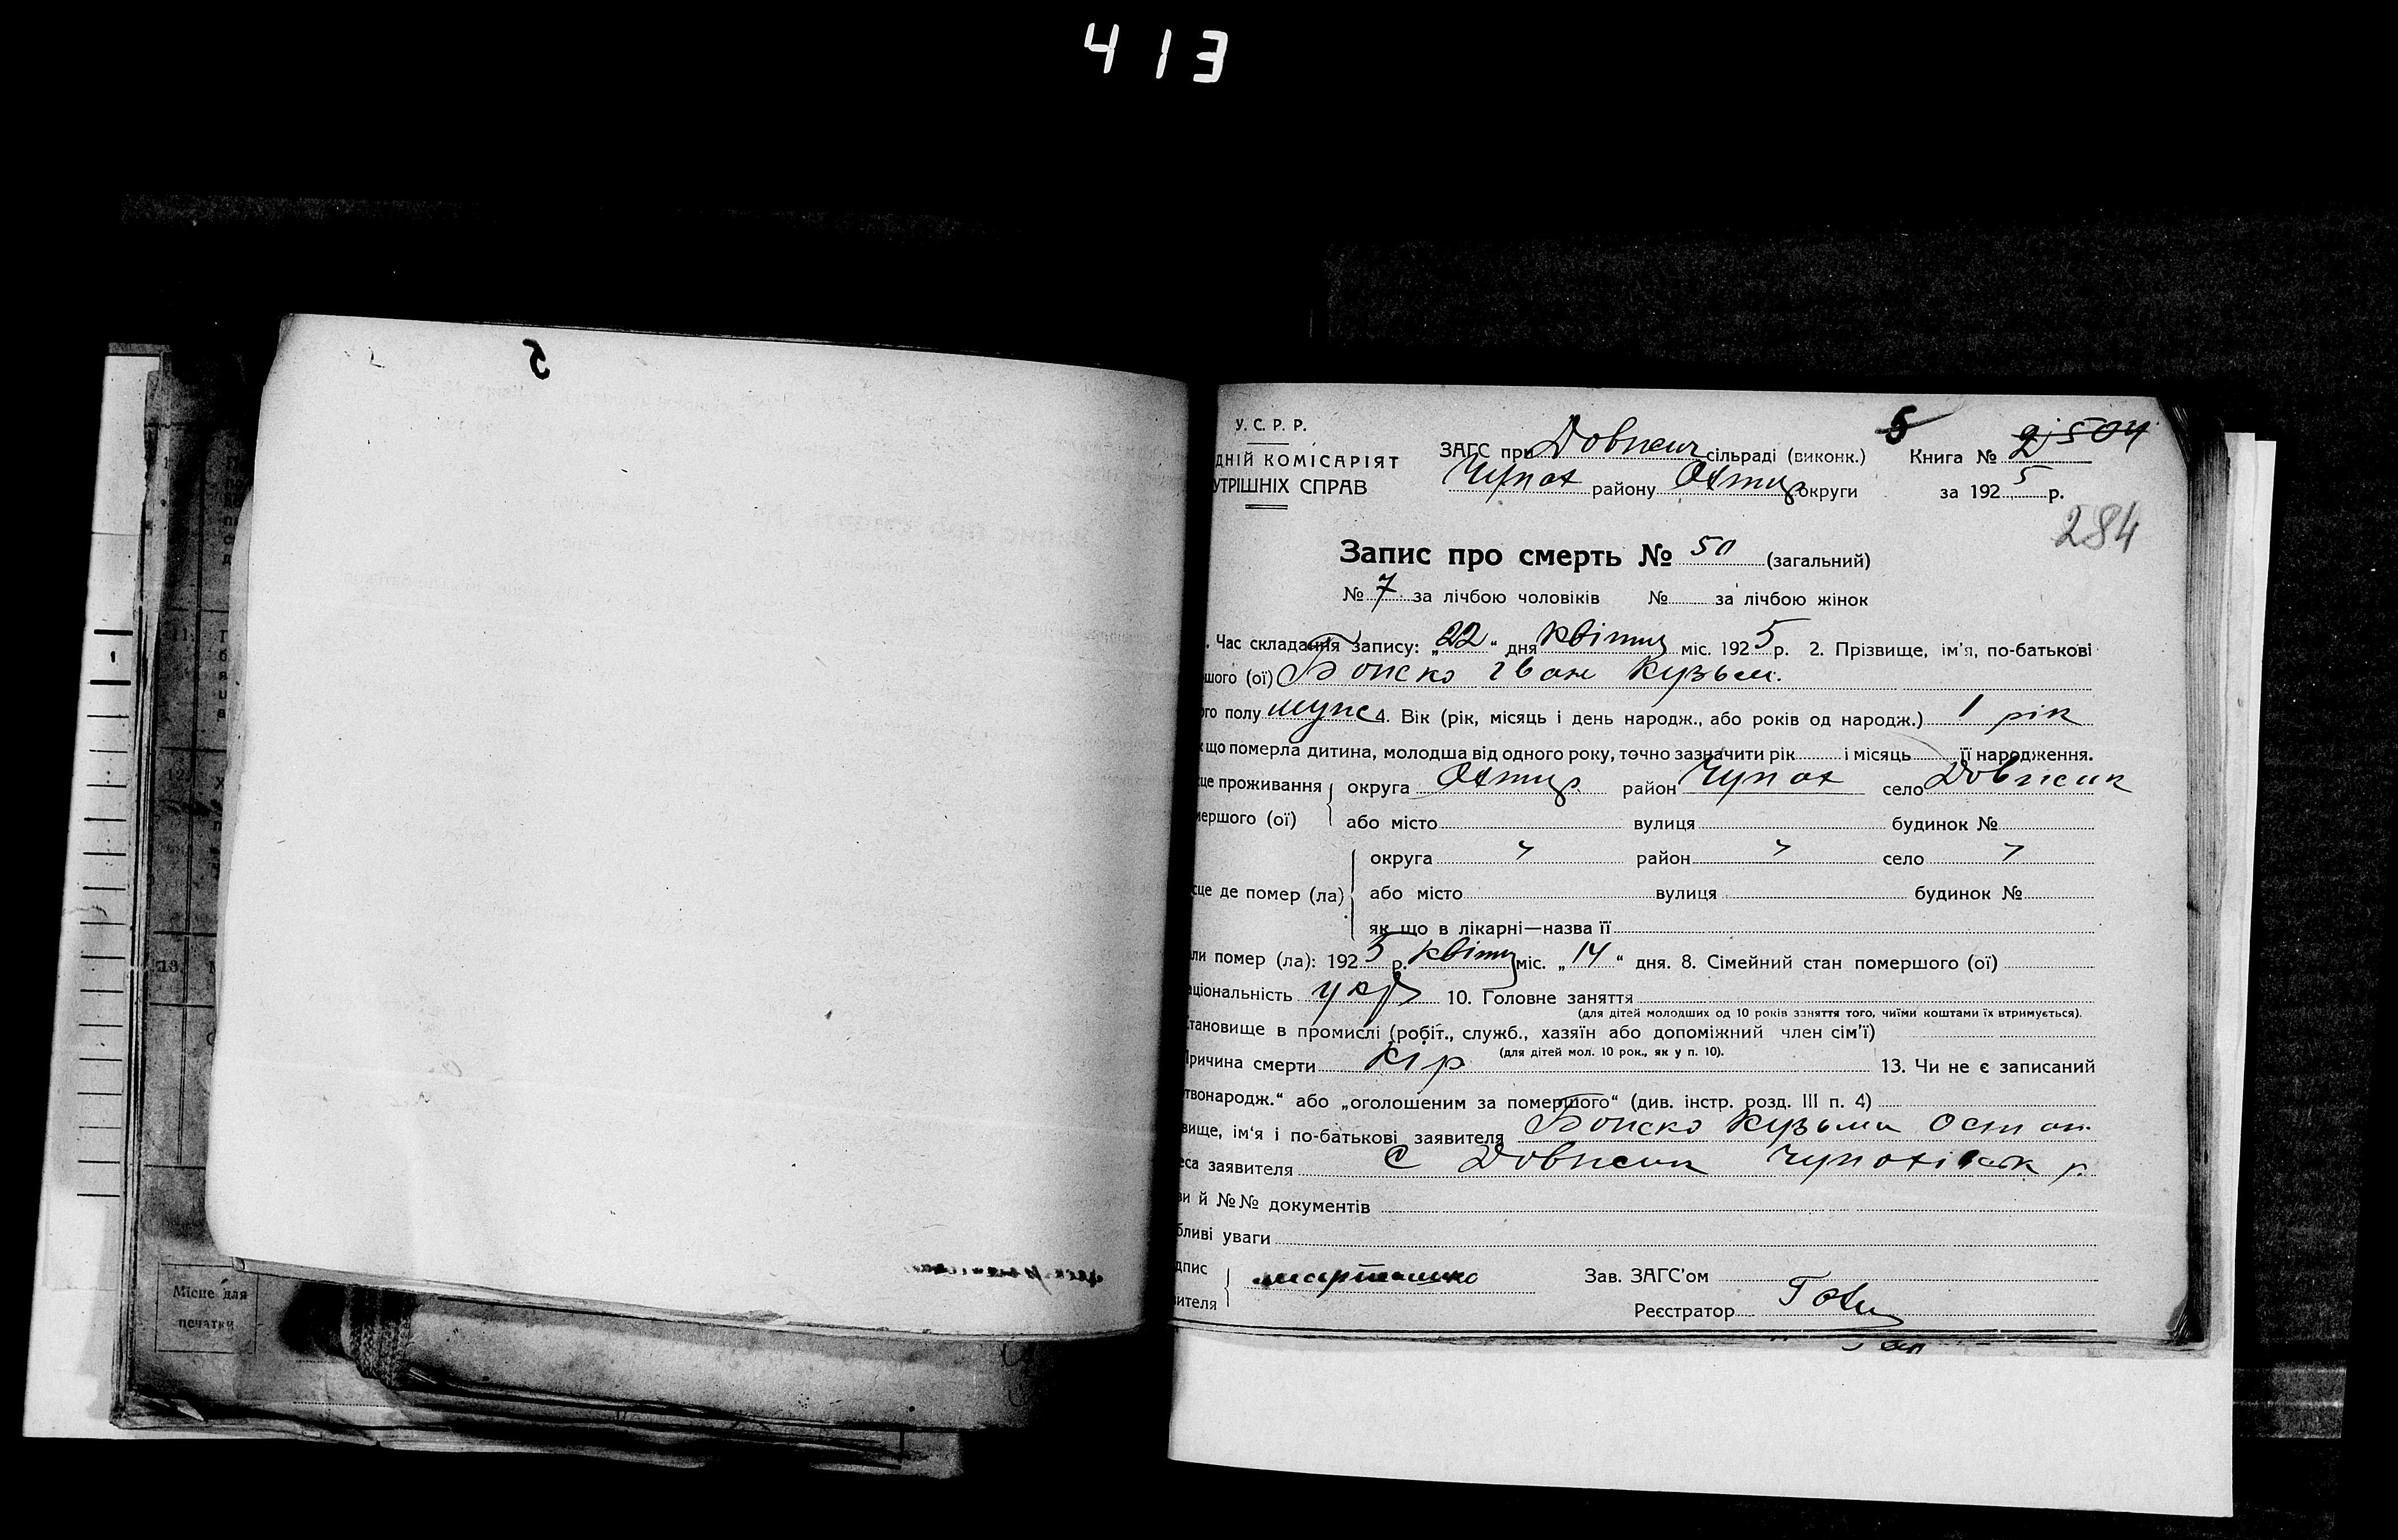 413
5
У. С. Р. Р.
ДНІЙ КОМІСАРІЯТ
УТРІШНІХ СПРАВ
ЗАГС при Довжиц сільраді (виконк.) 5 Книга № 2504
Чупах району Охтир округи за 1925 р.
284
Запис про смерть № 50 (загальний)
№ 7 за лічбою чоловіків № за лічбою жінок
. Час складання запису: „22“ дня квітня міс. 1925 р. 2. Прізвище, ім'я, по-батькові
шого (ої) Бойско Іван Кузьм.
го полу муж 4. Вік (рік, місяць і день народж., або років од народж.) 1 рік
що померла дитина, молодша від одного року, точно зазначити рік і місяць її народження.
це проживання округа Охтир район Чупах село Довжик
мершого (ої) або місто вулиця будинок №
округа " район " село "
сце де помер (ла) або місто вулиця будинок №
як що в лікарні—назва її
ли помер (ла): 1925 р. квітня міс. „14“ дня. 8. Сімейний стан помершого (ої)
аціональність укр 10. Головне заняття
(для дітей молодших од 10 років заняття того, чиїми коштами їх втримується).
тановище в промислі (робіт., служб., хазяїн або допоміжний член сім'ї)
(для дітей мол. 10 рок., як у п. 10).
Причина смерти кір 13. Чи не є записаний
твонародж.“ або „оголошеним за помершого“ (див. інстр. розд. III п. 4)
вище, ім'я і по-батькові заявителя Бойско Кузьма Остап.
еса заявителя С Довжик Чупахівськ р.
ви й №№ документів
бливі уваги
дпис Зав. ЗАГС'ом
вителя Реєстратор
Місце для
печатки